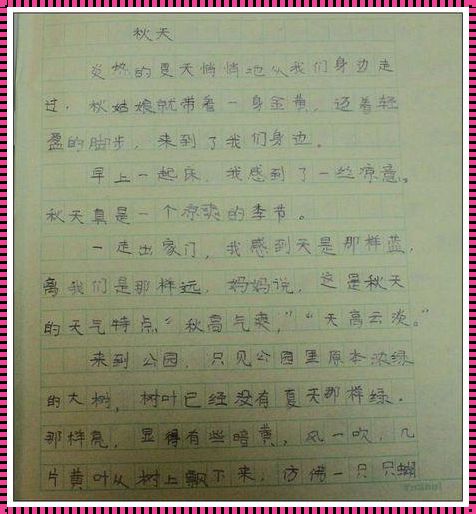 秋天
炎热的夏天悄悄地从我们身边走
过．秋姑娘就带着一身金黄，迈着轻
盈的脚步，来到了我们身边。
早上一起床，我感到了一丝凉意。
秋天真是一个凉爽的季节。
一走出家门，我感到天是那样蓝．
离我们是那样远．妈妈说，这是秋天
的天气特点“秋高气爽，”“天高云淡。”
来到公园，只见公园里原本浓绿
的大树，树叶已经没有夏天那样绿．
那样亮，显得有些暗黄，风一吹，几
片黄叶从树上飘下来，仿佛一只只蝴